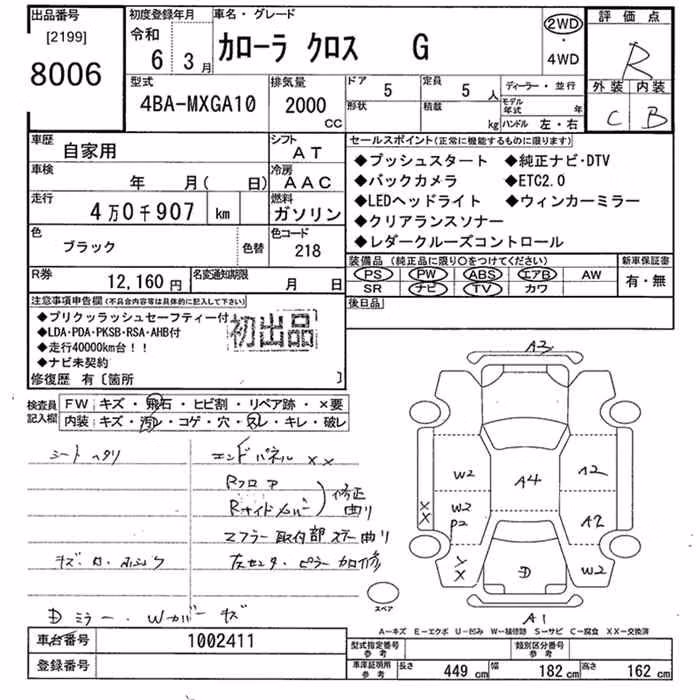 出品番号
[2199]
8006
初度登録年月
令和
6 3月
車名・グレード
カローラ クロス G
2WD
・
4WD
評価点
R
外装 内装
C B
型式
4BA-MXGA10
排気量
2000
CC
ドア
5
定員
5人
形状
積載
kg
ディーラー・並行
モデル年式 年
ハンドル 左・右
車歴
自家用
シフト
AT
車検
年 月( 日)
冷房
AAC
走行
4万0千907 km
燃料
ガソリン
色
ブラック
色替
色コード
218
R券
12,160円
名変通知期限
月 日
セールスポイント(正常に機能するものに限ります)
◆プッシュスタート ◆純正ナビ・DTV
◆バックカメラ ◆ETC2.0
◆LEDヘッドライト ◆ウィンカーミラー
◆クリアランスソナー
◆レダークルーズコントロール
装備品 (純正品に限り○をつけてください)
PS PW ABS エアB AW
SR ナビ TV カワ
新車保証書
有・無
後日品
注意事項申告欄(不具合内容等は具体的に記入して下さい)
◆プリクッラッシュセーフティー付
◆LDA・PDA・PKSB・RSA・AHB付
◆走行40000km台!!
◆ナビ未契約
初出品
修復歴 有〔箇所 〕
検査員記入欄
FW キズ・飛石・ヒビ割・リペア跡・×要
内装 キズ・汚レ・コゲ・穴・スレ・キレ・破レ
シート ヘタリ
エンドパネル ××
Rフロア
Rサイドメンバー
修正
曲り
マフラー取付部ステー曲り
左センターピラー加修
Dミラー・Wカバー キズ
A3
W2
A2
A4
××
W2
P2
A2
××
D
W2
A1
スペア
A-キズ E-エクボ U-凹み W-補修跡 S-サビ C-腐食 XX-交換済
車台番号
1002411
登録番号
型式指定番号
参考
類別区分番号
参考
車庫証明用
参考
長さ 449 cm 幅 182 cm 高さ 162 cm